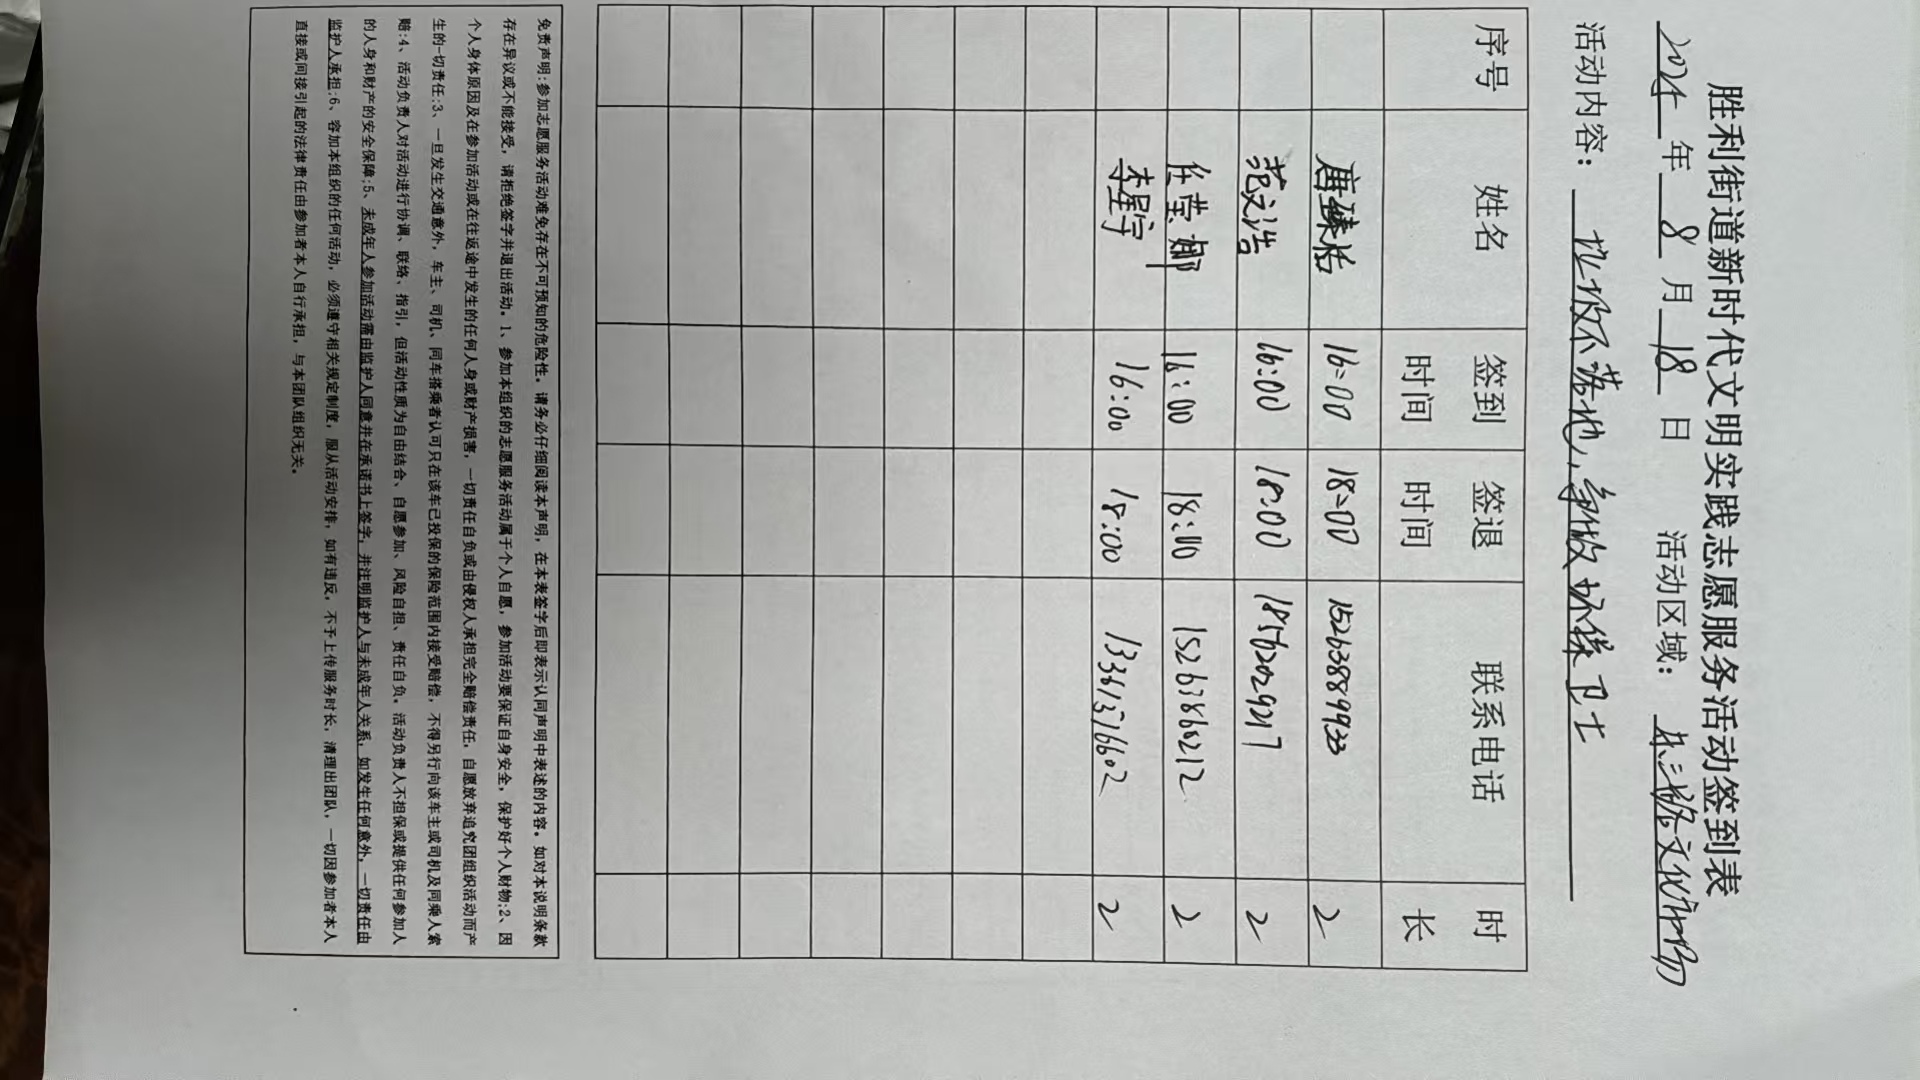 胜利街道新时代文明实践志愿服务活动签到表
2024 年 8 月 18 日 活动区域: 东三路文化市场
活动内容: 垃圾不落地,争做环保卫士
序号 姓名 签到时间 签退时间 联系电话 时长
唐臻浩 16:00 18:00 15263889933 2
范文浩 16:00 18:00 18562029217 2
任莹娜 16:00 18:00 15263860212 2
李星宇 16:00 18:00 13361576602 2
免责声明:参加志愿服务活动难免存在不可预知的危险性。请务必仔细阅读本声明,在本表签字后即表示认同声明中表述的内容。如对本说明条款
存在异议或不能接受,请拒绝签字并退出活动。1、参加本组织的志愿服务活动属于个人自愿,参加活动要保证自身安全,保护好个人财物;2、因
个人身体原因及在参加活动或在往返途中发生的任何人身或财产损害,一切责任自负或由侵权人承担完全赔偿责任,自愿放弃追究团组织活动而产
生的一切责任;3、一旦发生交通意外,车主、司机、同车搭乘者认可只在该车已投保的保险范围内接受赔偿,不得另行向该车主或司机及同乘人索
赔;4、活动负责人对活动进行协调、联络、指引,但活动性质为自由结合、自愿参加、风险自担、责任自负。活动负责人不担保或提供任何参加人
的人身和财产的安全保障;5、未成年人参加活动需由监护人同意并在承诺书上签字,并注明监护人与未成年人关系,如发生任何意外,一切责任由
监护人承担;6、容加本组织的任何活动,必须遵守相关规定制度,服从活动安排,如有违反,不予上传服务时长,清理出团队,一切因参加者本人
直接或间接引起的法律责任由参加者本人自行承担,与本团队组织无关。